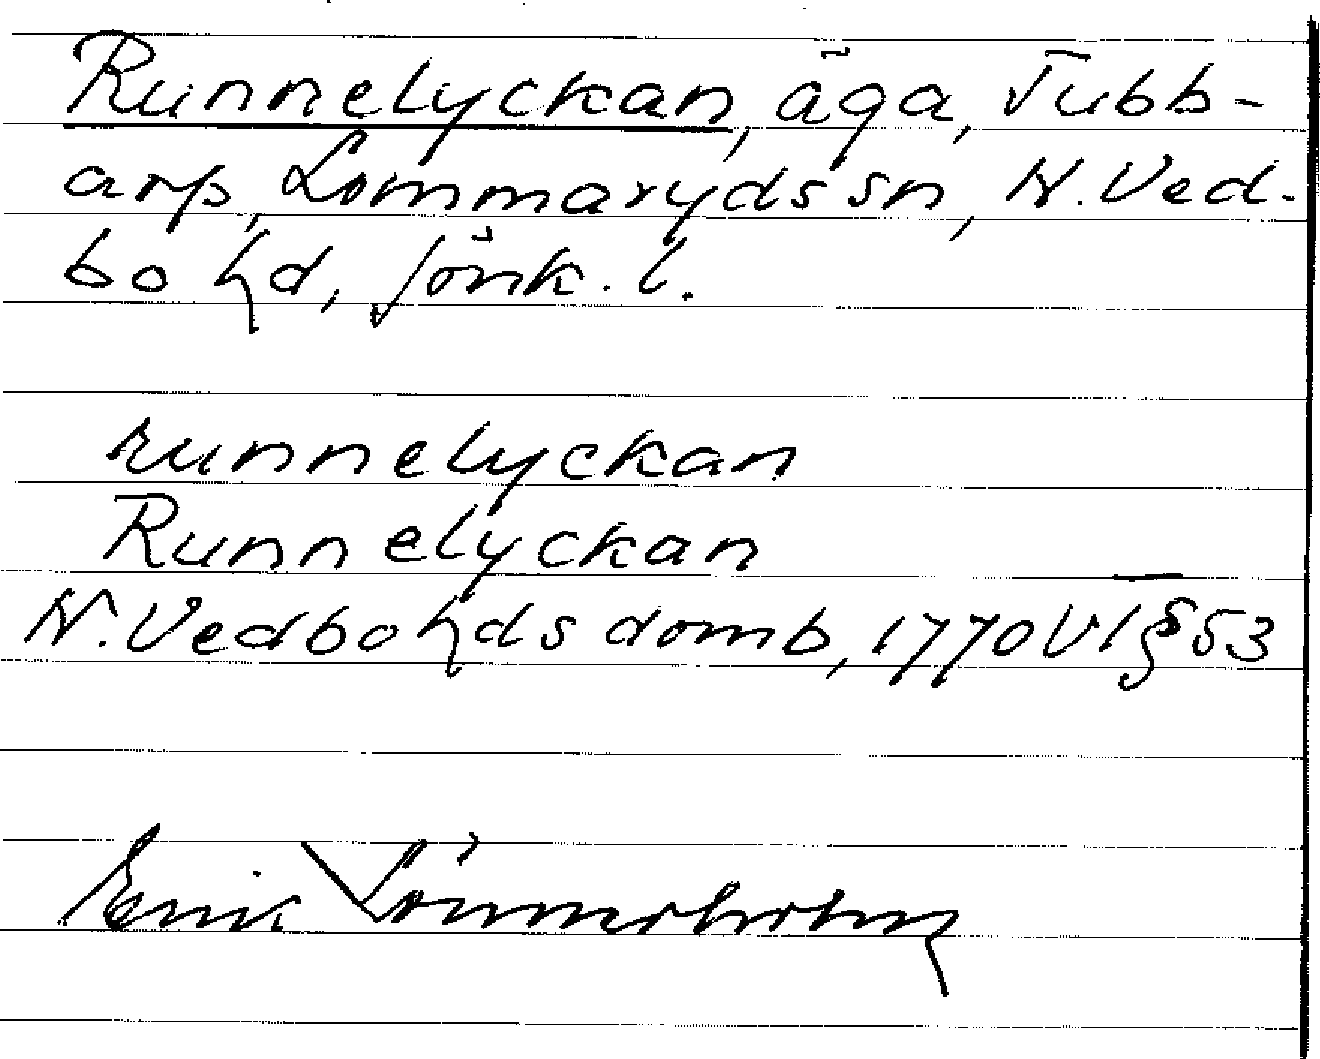 Runnelyckan, äga, Tubb-
arp, Lommaryds sn, N. Ved-
bo hd, Jönk. l.
runnelyckan
Runnelyckan
N. Vedbo hds domb, 1770 VI § 53
Erik Lönnerholm